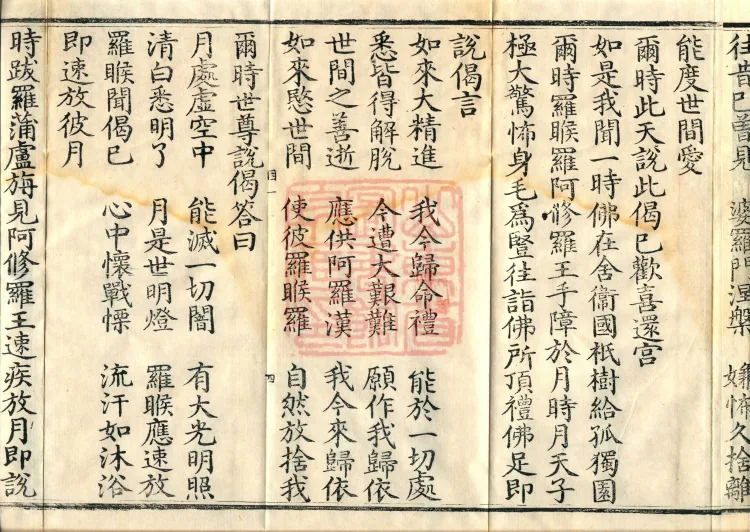 往昔已曾見　婆羅門涅槃　嫌怖久捨離
能度世間愛
爾時此天說此偈已歡喜還宮
如是我聞一時佛在舍衞國祇樹給孤獨園
爾時羅睺羅阿修羅王手障於月時月天子
極大驚怖身毛爲豎往詣佛所頂禮佛足即
說偈言
如來大精進　我今歸命禮　能於一切處
悉皆得解脫　今遭大艱難　願作我歸依
世間之善逝　應供阿羅漢　我今來歸依
如來愍世間　使彼羅睺羅　自然放捨我
爾時世尊說偈答曰
月處虛空中　能滅一切闇　有大光明照
清白悉明了　月是世明燈　羅睺應速放
羅睺聞偈已　心中懷戰慄　流汗如沐浴
即速放彼月
時跋羅蒲盧旃見阿修羅王速疾放月即說
四一
四